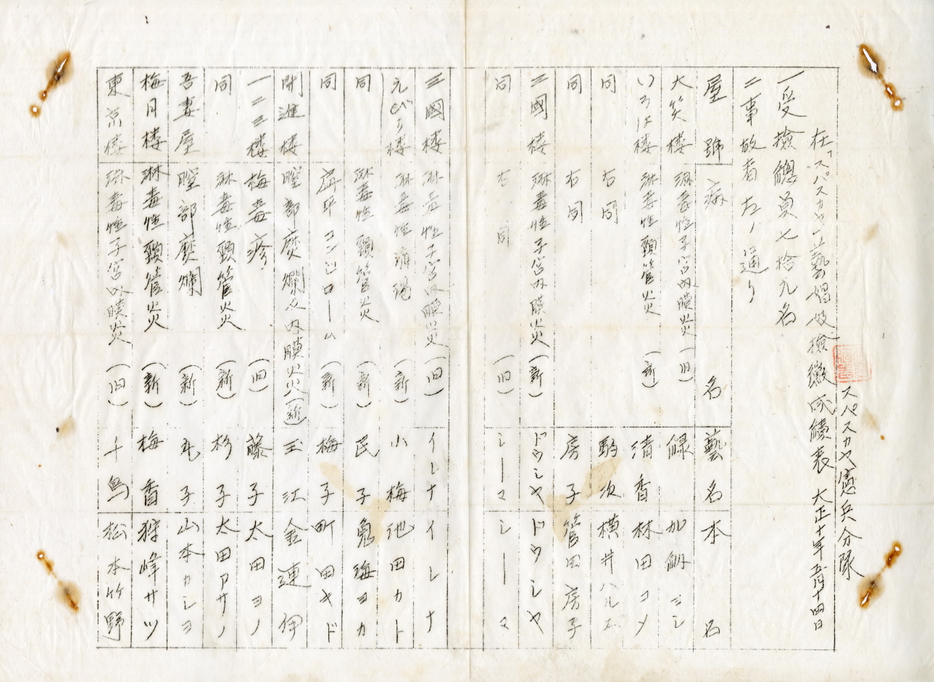 在「スパスカヤ」藝娼妓檢黴成績表 大正十年五月十四日
スパスカヤ憲兵分隊
一受檢總員七拾九名
二事故者左ノ通リ
屋號 病名 藝名 本名
大笑楼 淋毒性子宮内膜炎 (旧) 緑 加納ヨシ
いろは楼 淋毒性頸管炎 (新) 清香 林田コメ
同 右同 駒次 横井ハル
同 右同 房子 菅田房子
三國楼 淋毒性子宮内膜炎 (新) ドウシヤ ドウシヤ
同 右同 (旧) シーマ シーマ
三國楼 淋毒性子宮内膜炎 (旧) イレナ イレナ
えびす楼 淋毒性 (新) 小梅 池田カト
同 淋毒性頸管炎 (新) 民子 鬼海ヨカ
同 コンジローム (新) 梅子 町田キド
開進楼 膣部糜爛及内膜炎 (新) 玉江 金運伊
一二三楼 梅毒疹 (旧) 藤子 太田ヨノ
同 淋毒性頸管炎 (新) 杉子 太田アサノ
吾妻屋 膣部糜爛 (新) 丸子 山本カシヨ
梅月楼 淋毒性頸管炎 (新) 梅香 狩峰サツ
東京楼 淋毒性子宮内膜炎 (旧) 千鳥 松本竹野